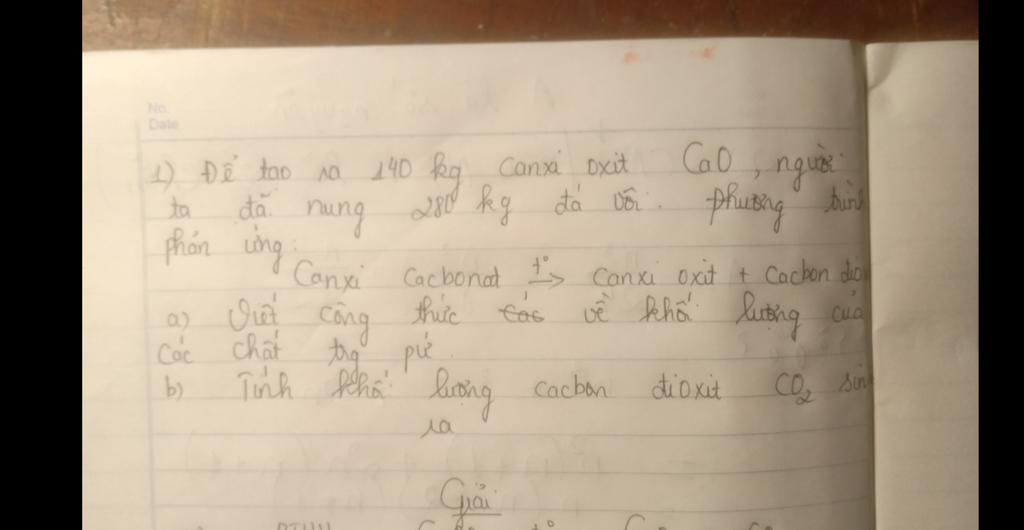 No.
Date
1) Để tạo ra 140 kg Canxi oxit CaO, người
ta đã nung 280 kg đá vôi. Phương trình
phản ứng:
Canxi Cacbonat t° → canxi oxit + Cacbon đio
a) Viết công thức về khối lượng của
các chất trg pứ.
b) Tính khối lượng cacbon đioxit CO₂ sinh
ra
Giải